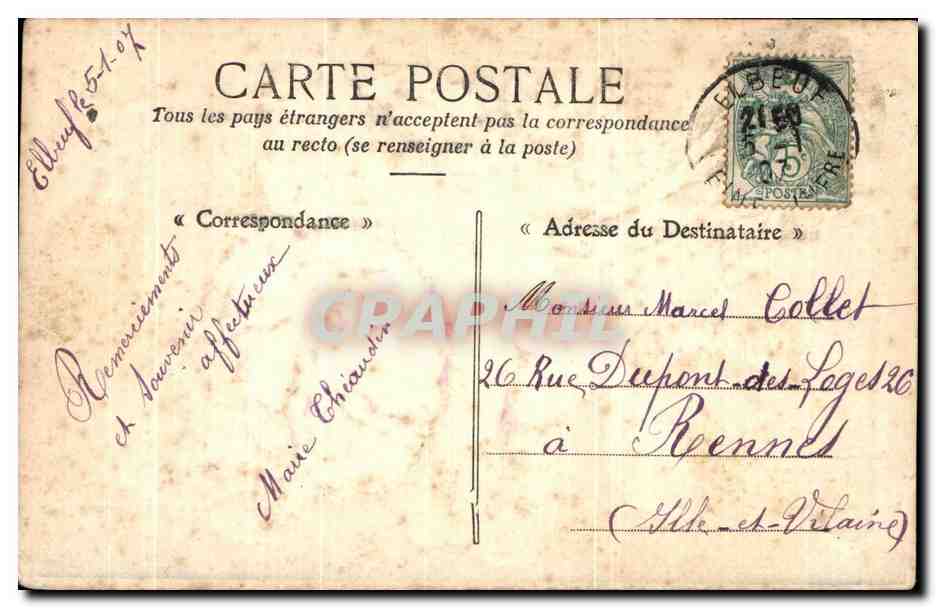 Elbeuf le 5-1-07
CARTE POSTALE
Tous les pays étrangers n'acceptent pas la correspondance
au recto (se renseigner à la poste)
ELBEUF
21 50
5 - 1
07
5c
POSTES
« Correspondance »
Remerciements
et souvenir
affectueux
« Adresse du Destinataire »
Monsieur Marcel Collet
26 Rue Dupont-des-Loges 26
à Rennes
(Ille-et-Vilaine)
CPAPHIL